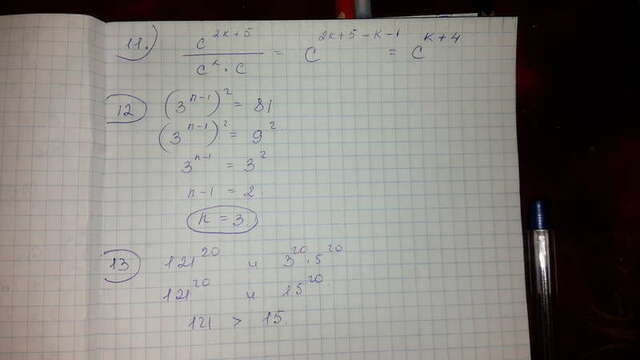 11.) c^{2k+5} / (c^k · c) = c^{2k+5-k-1} = c^{k+4}
12 (3^{n-1})^2 = 81
(3^{n-1})^2 = 9^2
3^{n-1} = 3^2
n-1 = 2
n = 3
13 121^{20} и 3^{20} · 5^{20}
121^{20} и 15^{20}
121 > 15